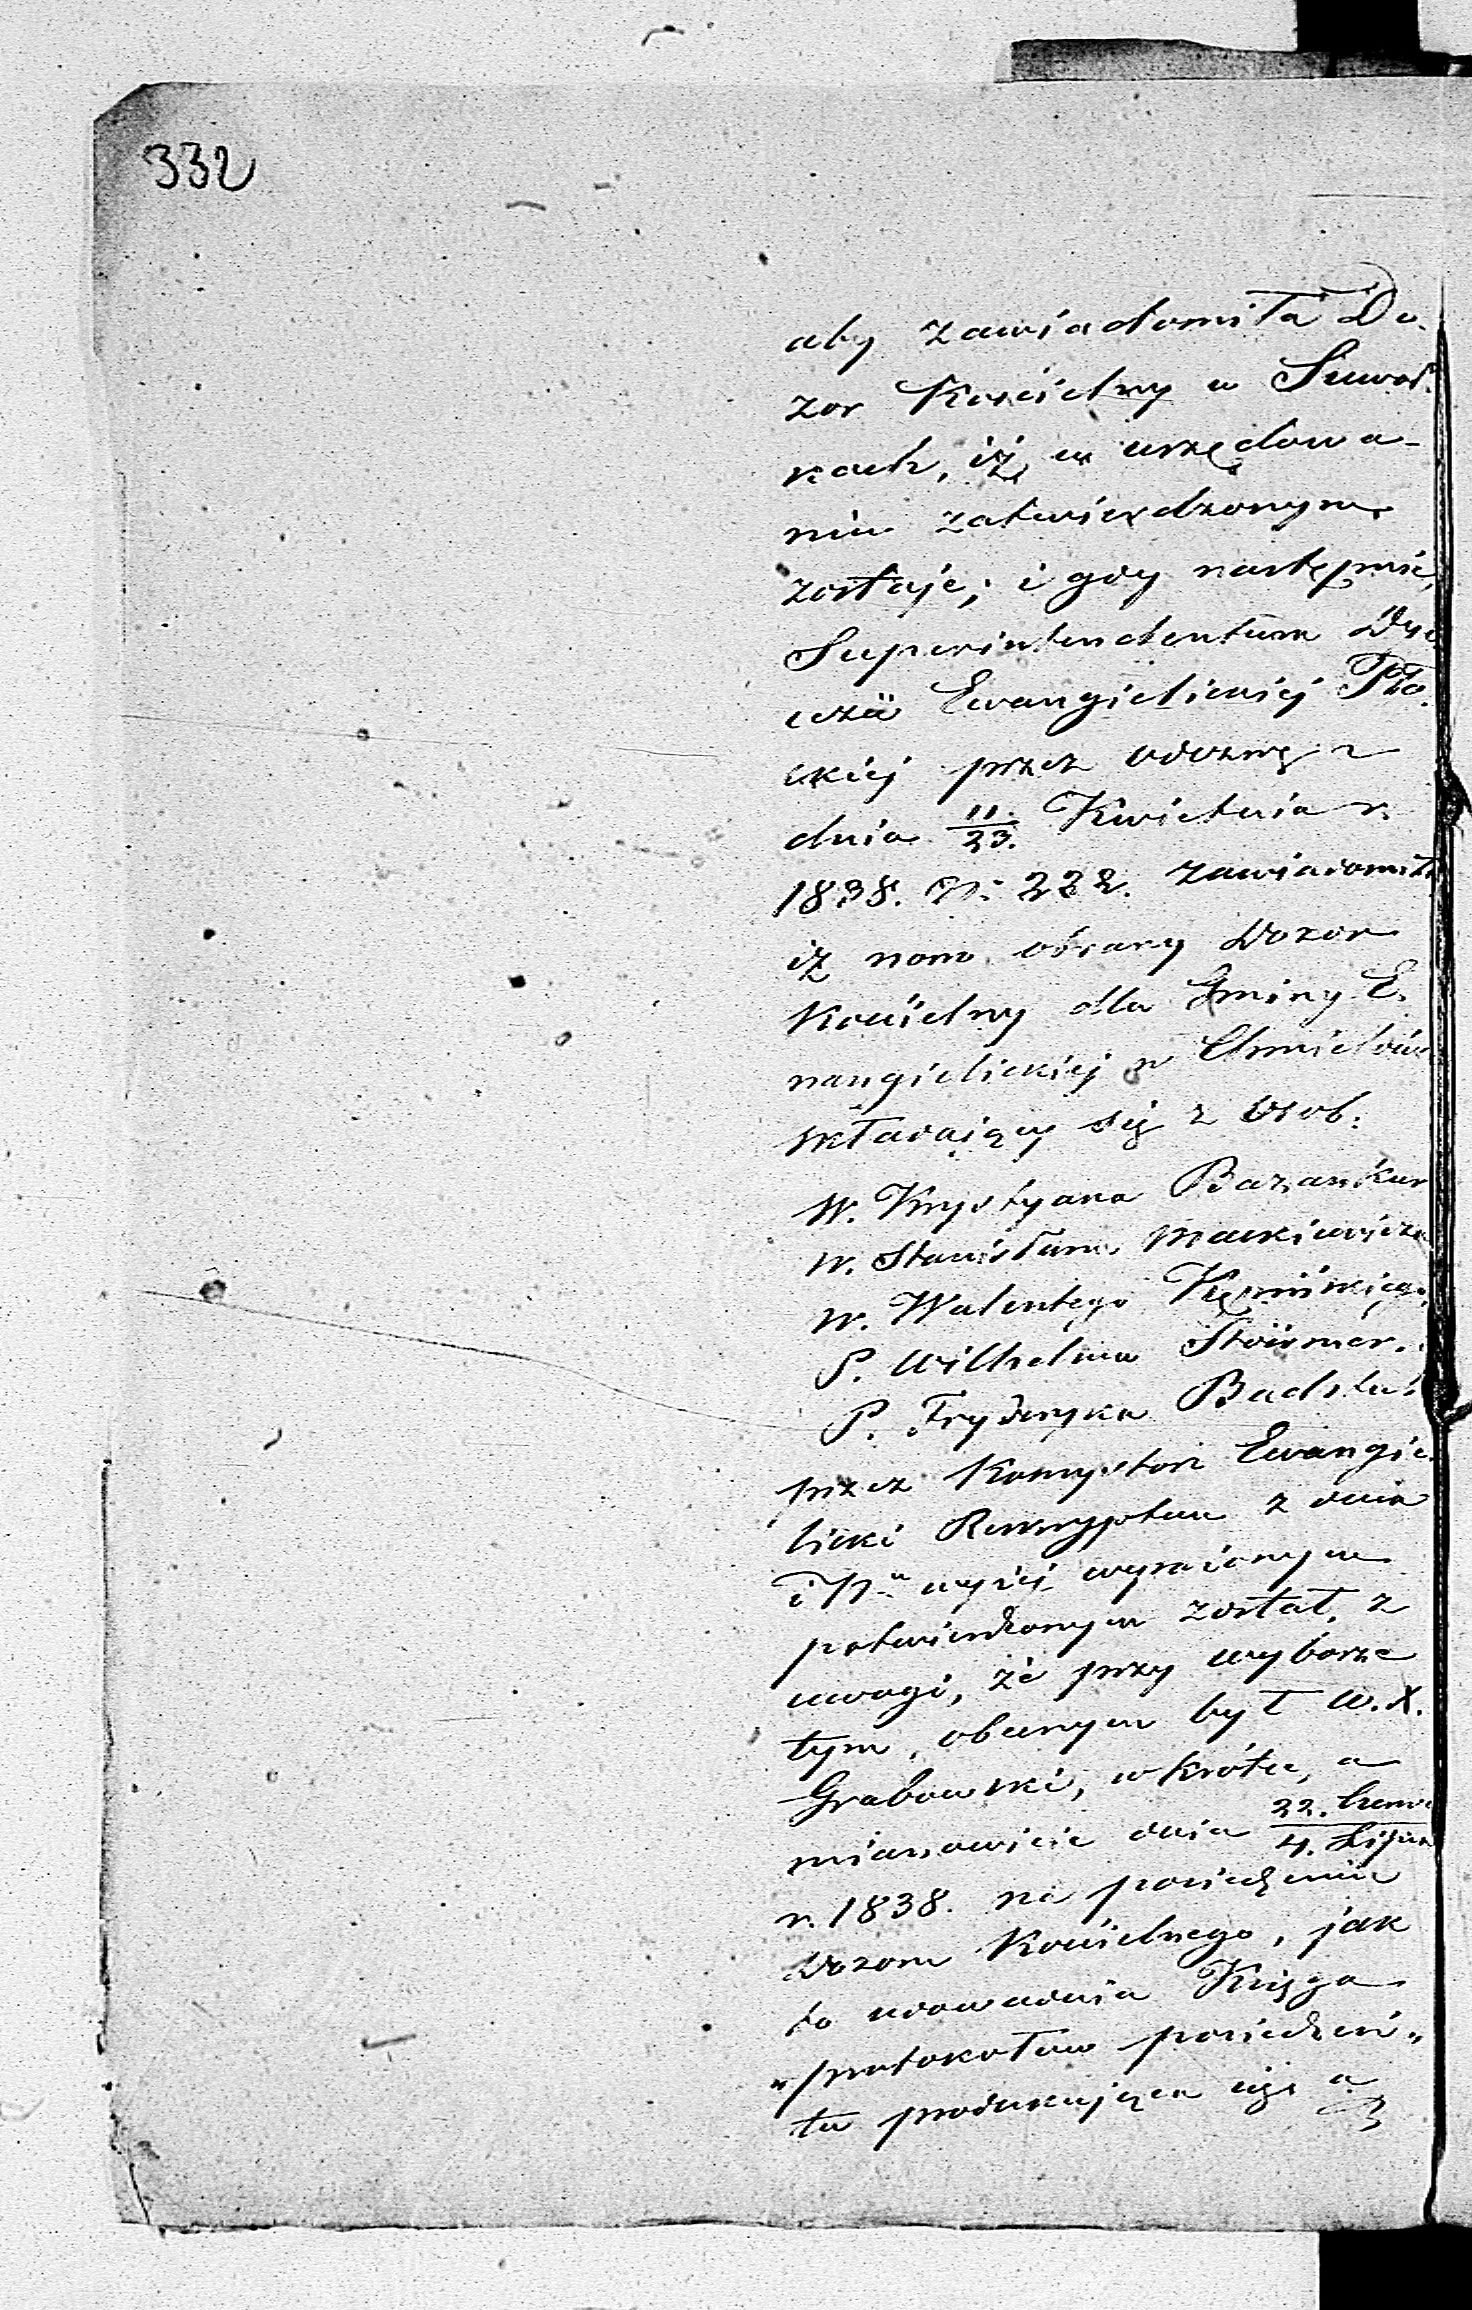 332
aby zawiadomiła Do-
zor Kościelny w Suwał-
kach, iż w urzędowa-
niu zatwierdzonym
zostaje; i gdy następnie,
Superintendentura Dye-
cezii Ewangielickiej Pło-
ckiej przez odezwę z
dnia 11/23. Kwietnia r.
1838. N: 222. zawiadomiła
iż nowo obrany Dozor
Kościelny dla Gminy E-
wangielickiej w Chmielów
składaiący się z Osob:
W. Krystyana
W. Stanisława Mackiewicza
W. Walentego
P. Wilhelma Störmer.
P. Fryderyka
przez Konsystorz Ewangie-
licki Reskryptem z dnia
i Nu wyżej wyrażonym
potwierdzonym został, z
uwagi, że przy wyborze
tym, obecnym był W. X.
Grabowski, wkrótce, a
mianowicie dnia 22. Czerwc/4. Lipca
r. 1838. na posiedzeniu
Dozoru Kościelnego, jak
to udowadnia Księga
"protokołów posiedzeń"
ta produkująca się a